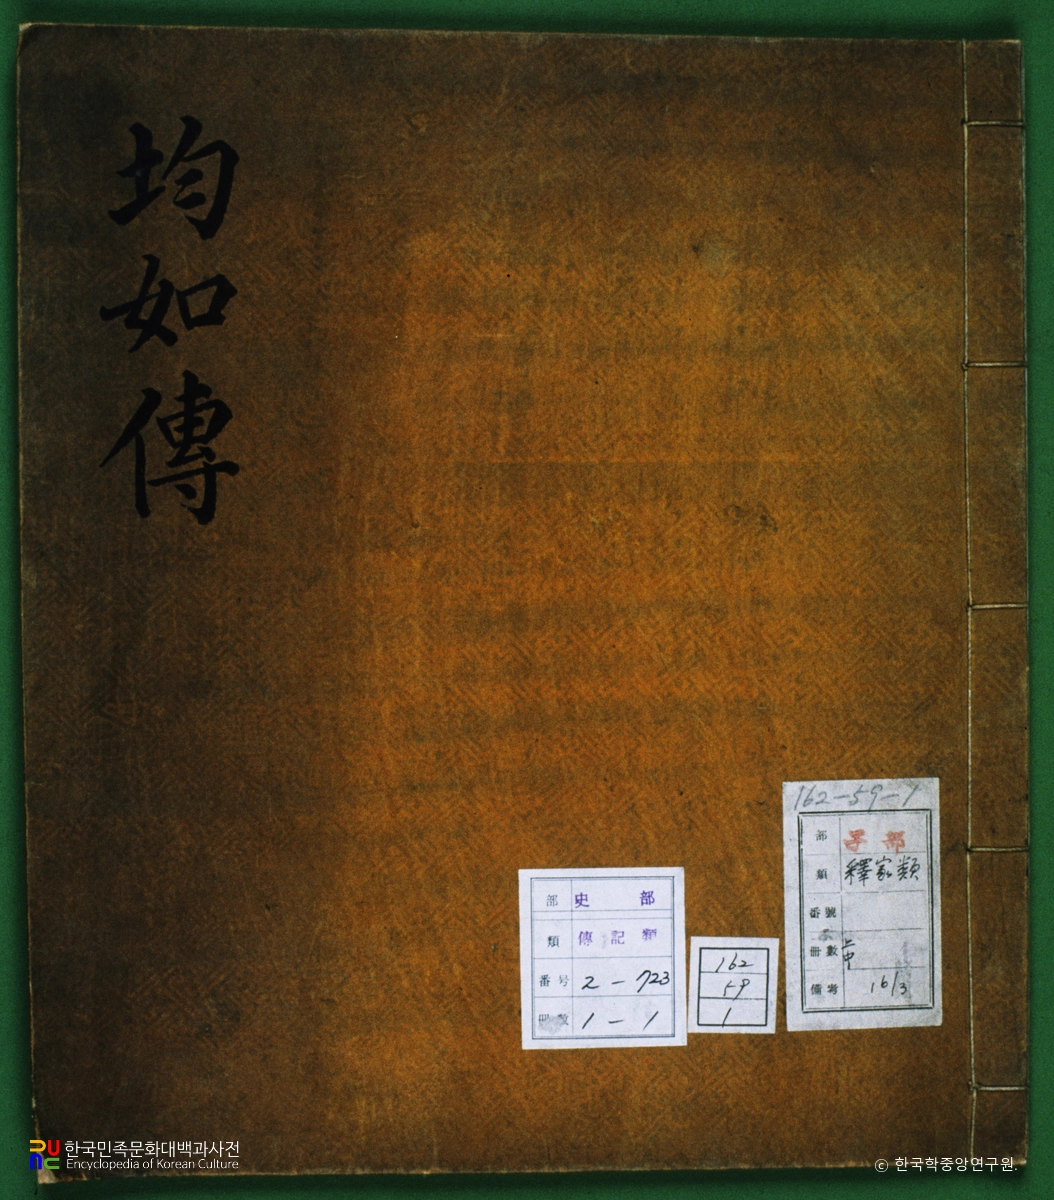 均如傳
162-59-1
部 子部
類 釋家類
番號
冊數
備考 16/3
部 史部
類 傳記類
番号 2-723
冊數 1-1
162
59
1
한국민족문화대백과사전
Encyclopedia of Korean Culture
© 한국학중앙연구원.